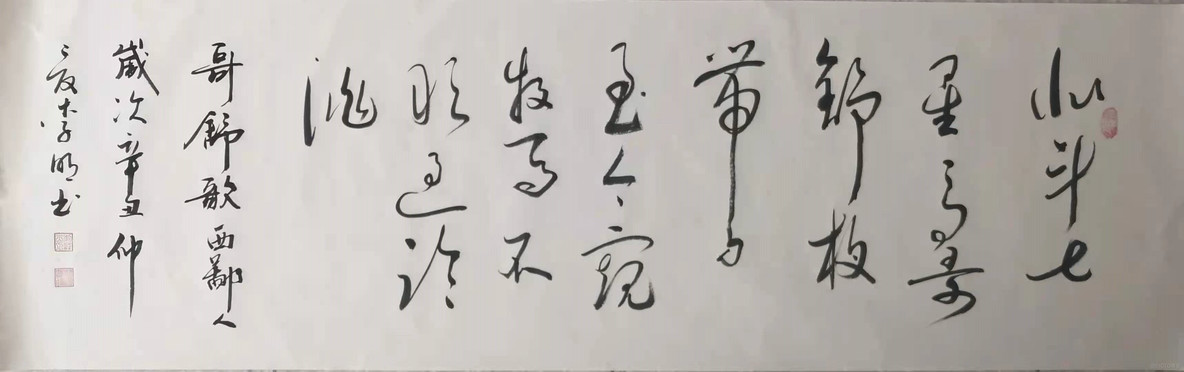 北斗七
星高哥
舒夜
带刀
至今窥
牧马不
敢过临
洮
哥舒歌西鄙人
歲次辛丑仲
夏李明书